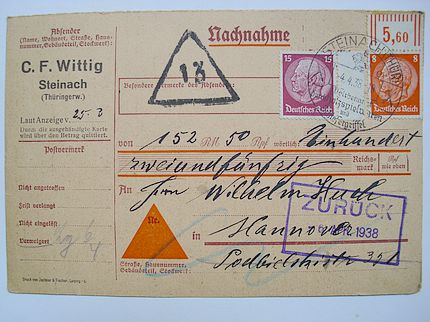 Absender
(Name, Wohnort, Straße, Haus-
nummer, Gebäudeteil, Stockwerk)
Nachnahme
C. F. Wittig
Steinach
(Thüringerw.)
13
Besondere Vermerke des Absenders:
15 15
Deutsches Reich
STEINACH
4.4.38
8 8
Deutsches Reich
5,60
Laut Anzeige v. 25.3
Durch die ausgehändigte Karte
wird über den Betrag quittiert.
Postvermerk
von 152 RM 50 Rpf wörtlich: Einhundert
zweiundfünfzig Reichs-
mark Rpf
wie oben
Nicht angetroffen
Frist verlangt
Nicht eingelöst
Verweigert
An Herrn Wilhelm
Nr.
ZURÜCK
APR. 1938
in Hannover
Straße, Hausnummer,
Gebäudeteil, Stockwerk:
Podbielskistr